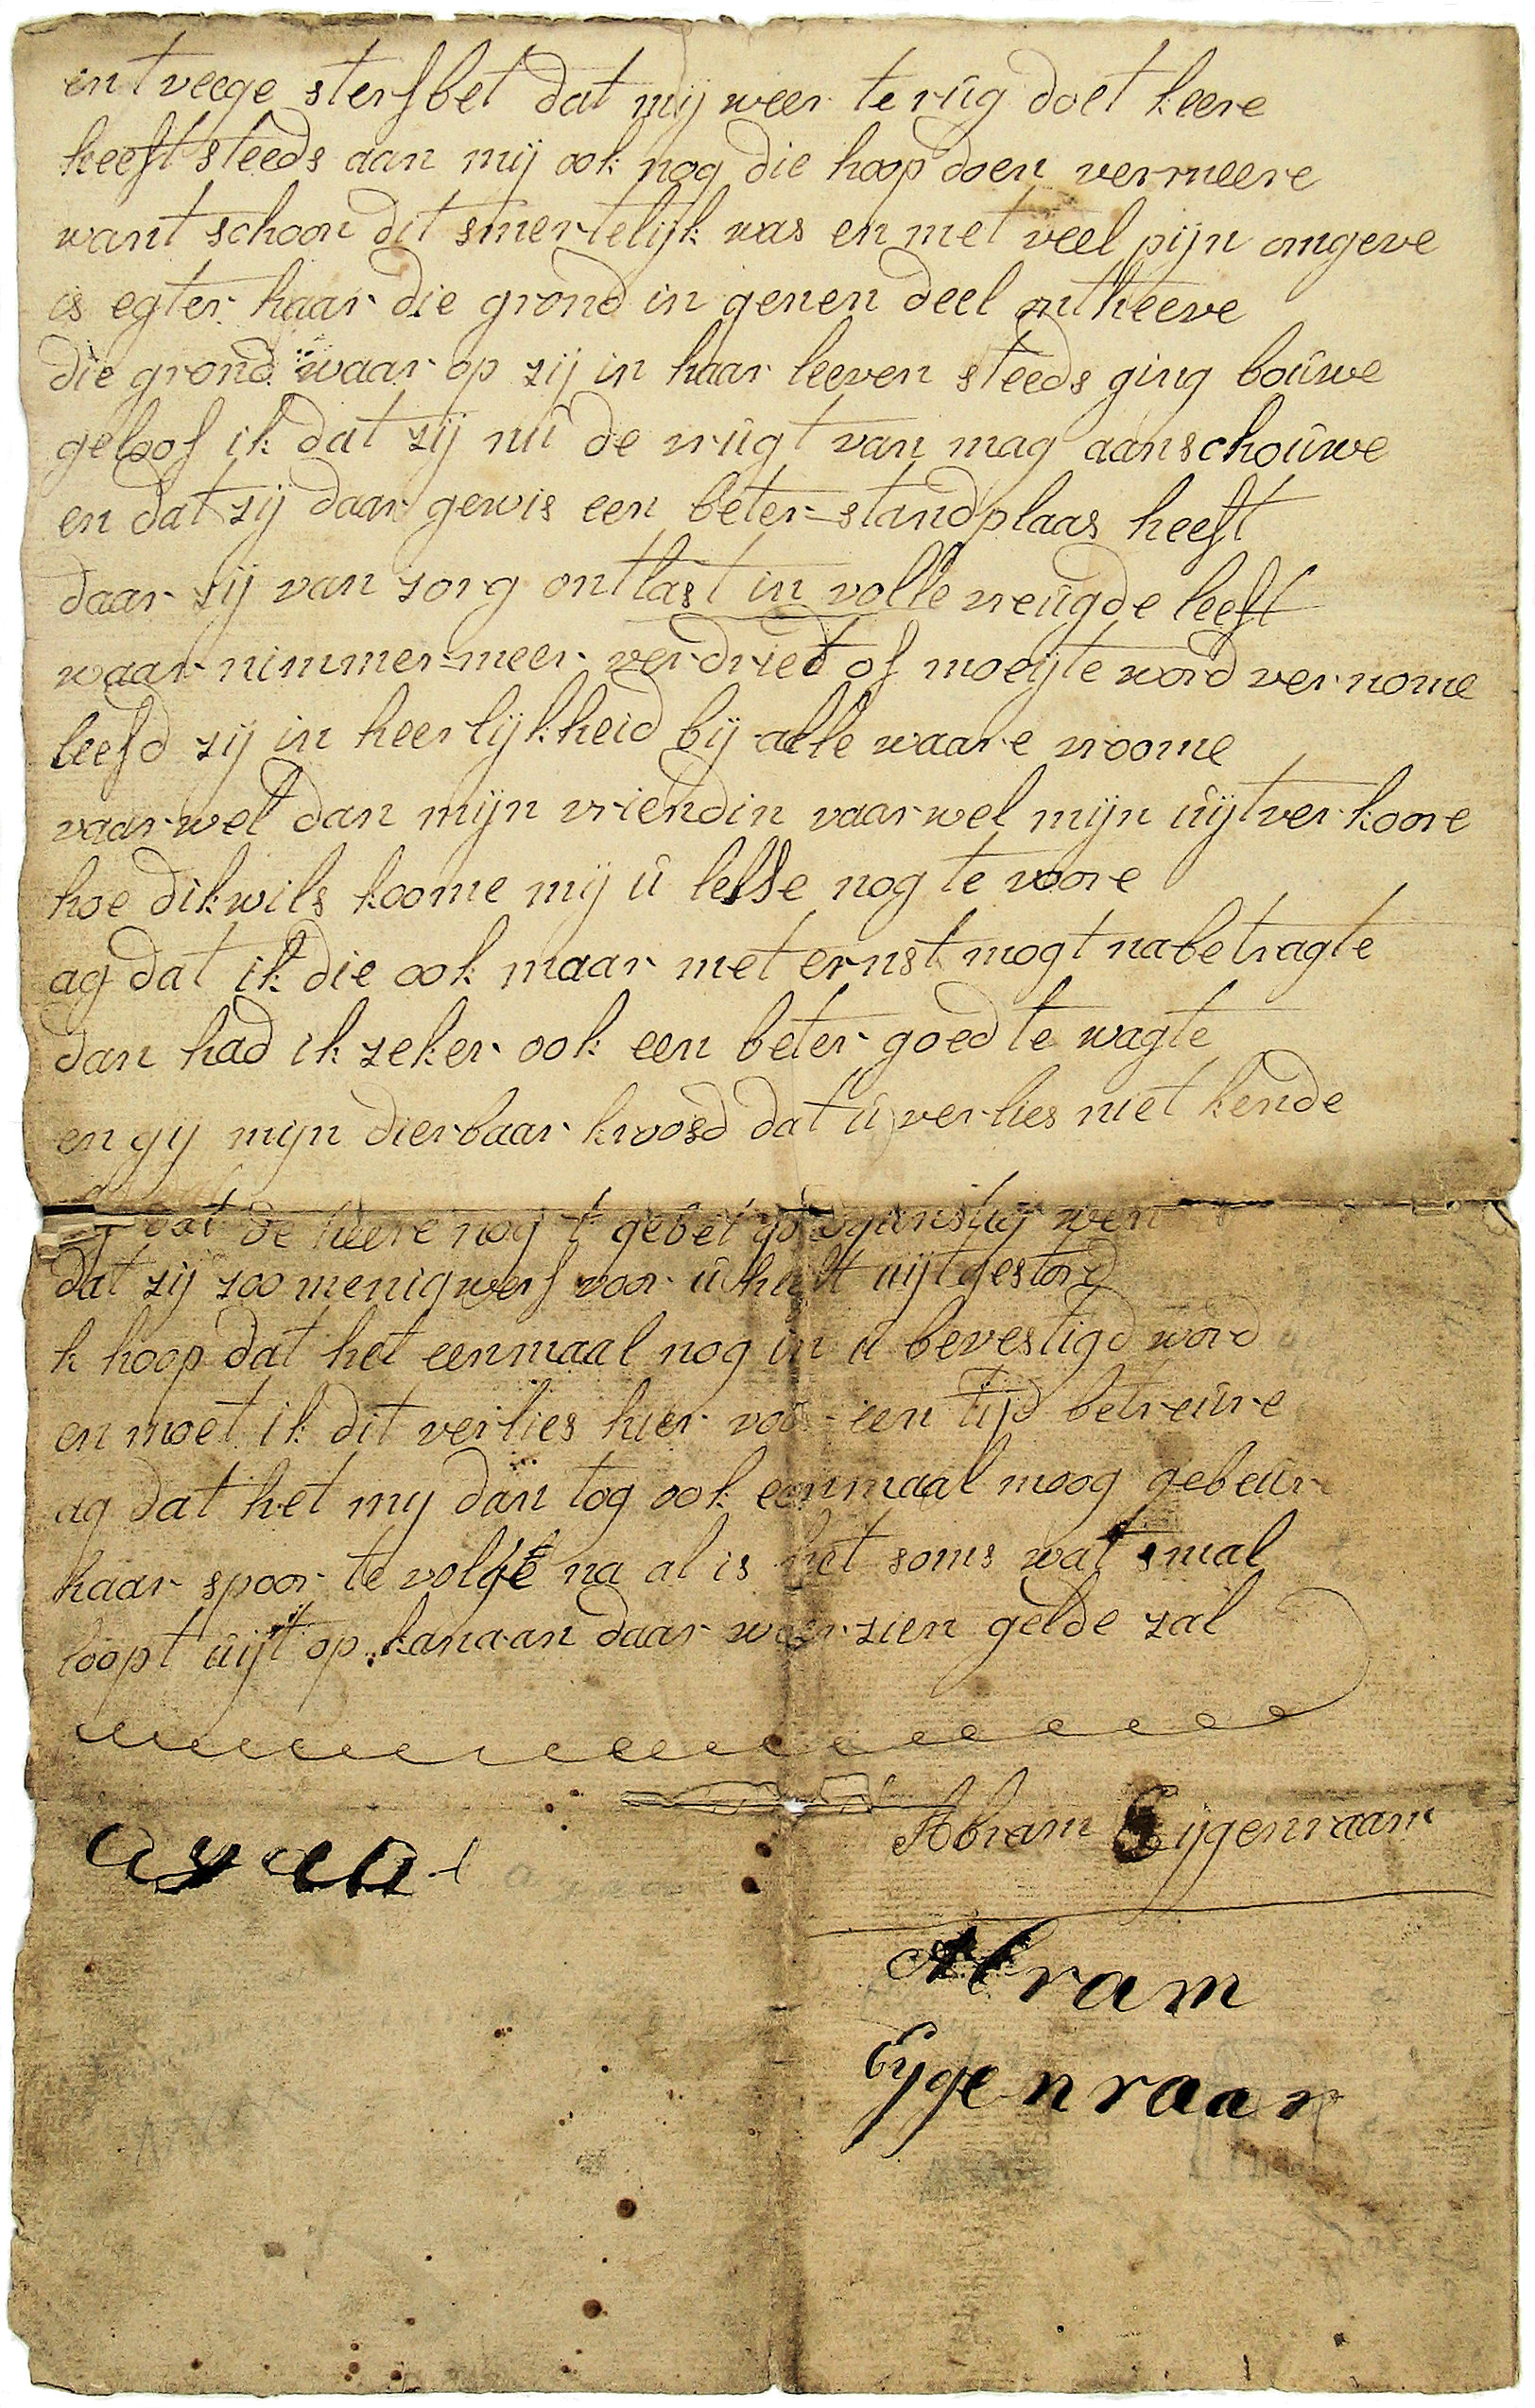 en t veege sterfbet dat mij weer te rûg doet keere
heeft steeds aan mij ook nog die hoop doen vermeere
want schoon dit smertelijk was en met veel pijn omgeve
is egter haar die grond in genen deel ontheeve
die grond waar op zij in haar leeven steeds ging boûwe
geloof ik dat zij nû de vrûgt van mag aanschoûwe
en dat zij daar gewis een beter standplaas heeft
daar zij van zorg ontlast in volle vreûgde leeft
waar nimmer meer verdriet of moeijte word vernome
leefd zij in heerlijkheid bij alle waare vroome
vaarwel dan mijn vriendin vaarwel mijn ûijtverkoore
hoe dikwils koome mij û lesse nog te voore
ag dat ik die ook maar met ernst mogt nabetragte
dan had ik zeker ook een beter goed te wagte
en gij mijn dierbaar kroosd dat û verlies niet kende
dat de heere nog t gebet
dat zij zoo menigwerf voor û heeft ûijtgestord
k hoop dat het eenmaal nog in û bevestigd word
en moet ik dit verlies hier voor een tijd betreûre
ag dat het mij dan tog ook eenmaal moog gebeûre
haar spoor te volge na al is het soms wat smal
loopt ûijt op kanaan daar weerzien gelde zal
Abram Eijgenraam
Abram
Eygenraam